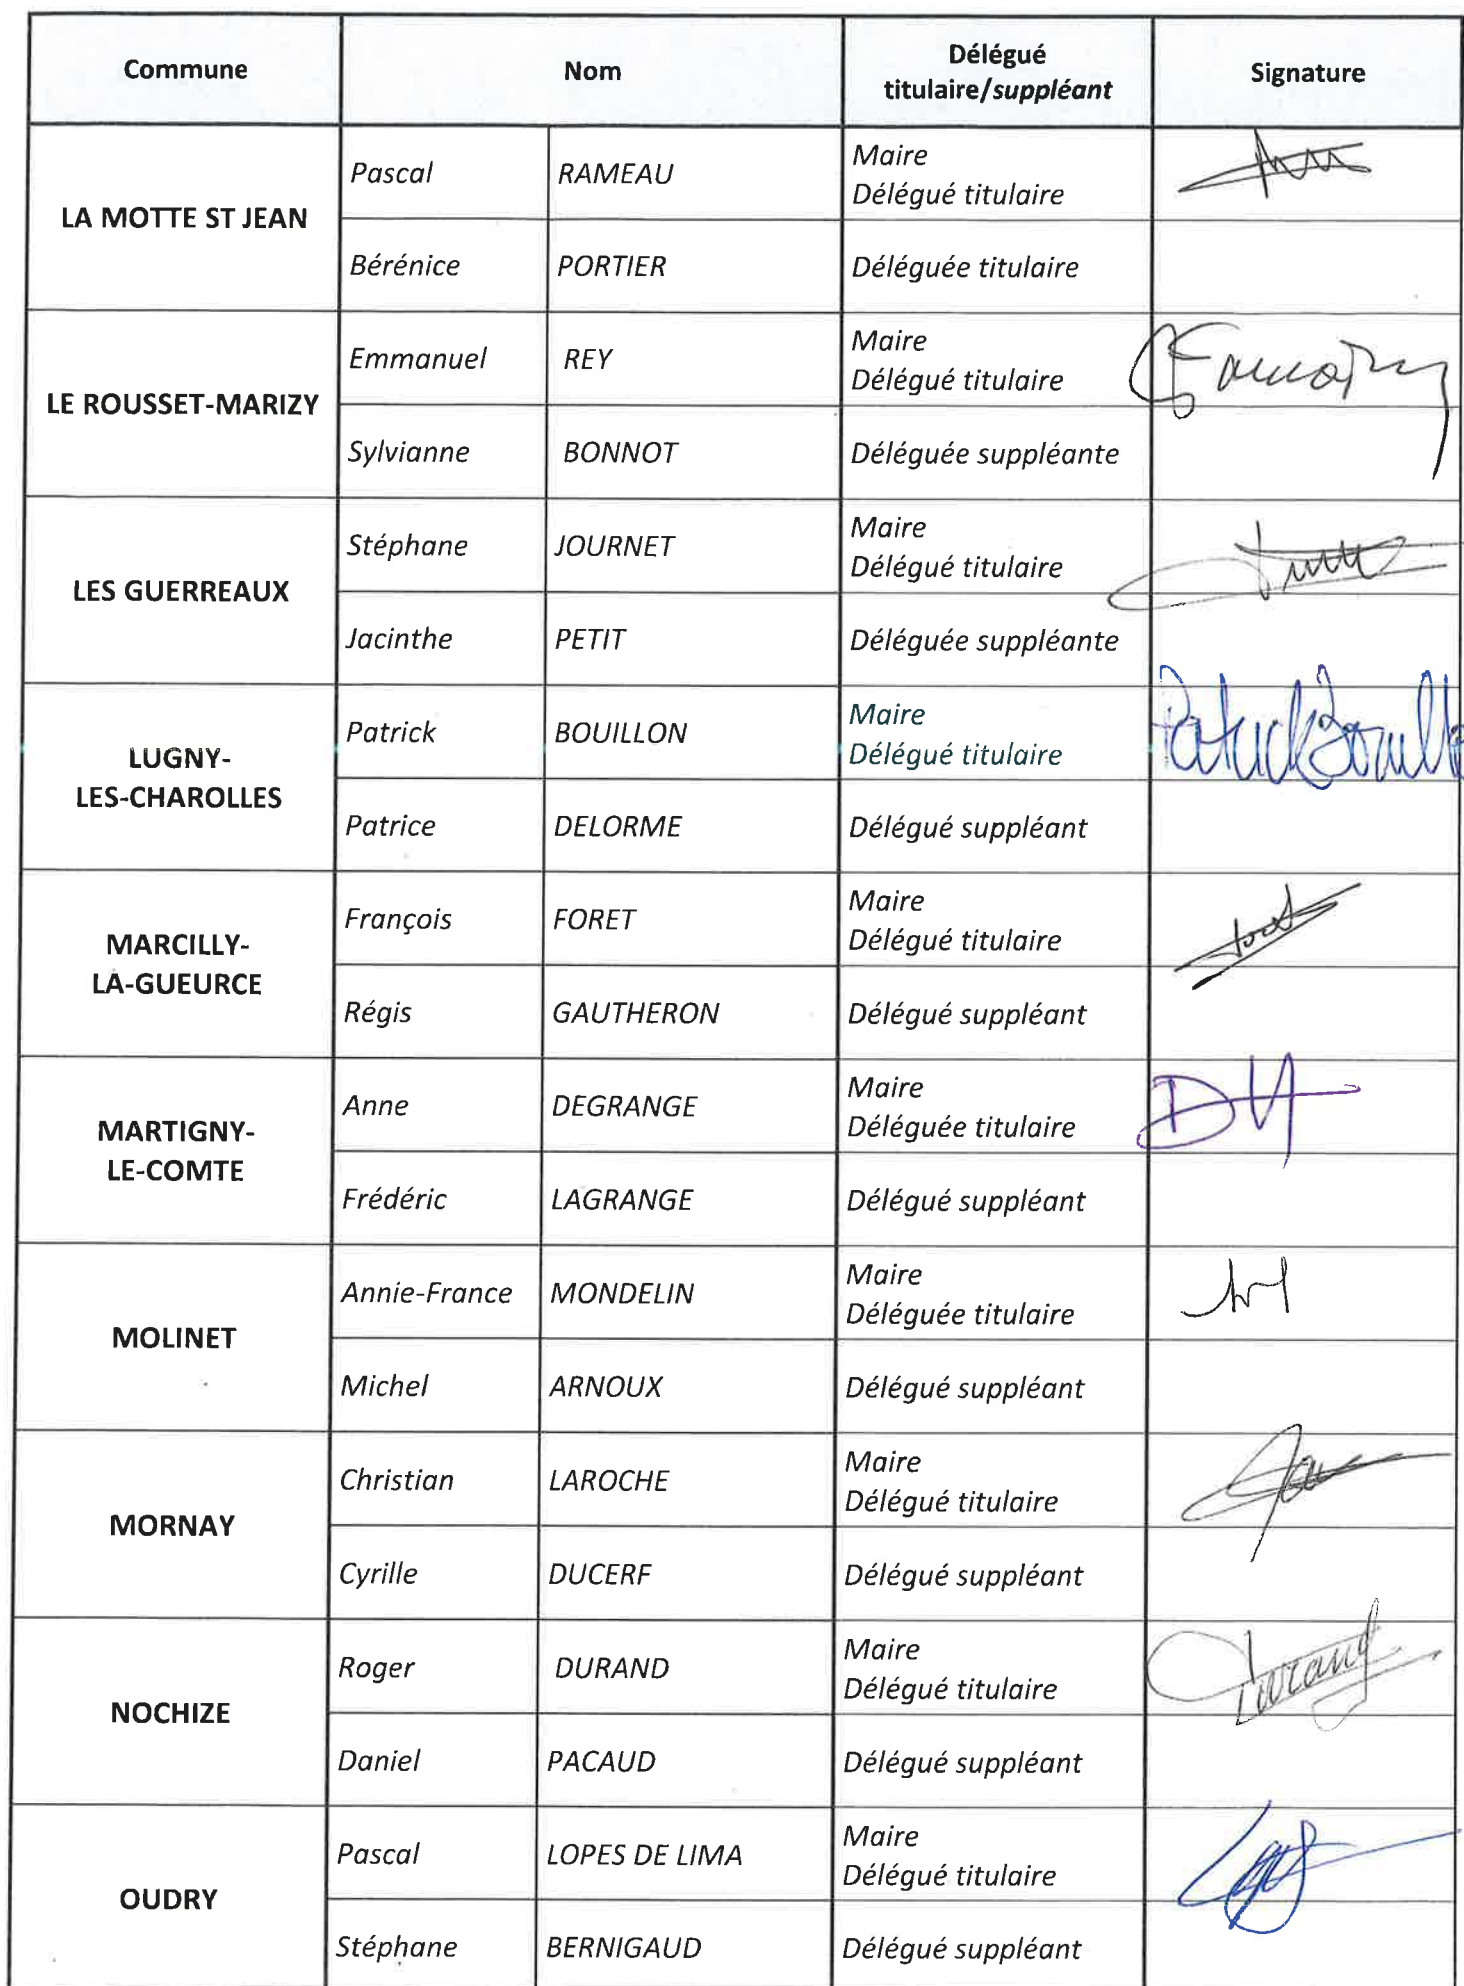 Commune Nom Délégué titulaire/suppléant Signature
LA MOTTE ST JEAN
Pascal RAMEAU Maire
Délégué titulaire
Bérénice PORTIER Déléguée titulaire
LE ROUSSET-MARIZY
Emmanuel REY Maire
Délégué titulaire
Sylvianne BONNOT Déléguée suppléante
LES GUERREAUX
Stéphane JOURNET Maire
Délégué titulaire
Jacinthe PETIT Déléguée suppléante
LUGNY-
LES-CHAROLLES
Patrick BOUILLON Maire
Délégué titulaire Patrick Bouillo
Patrice DELORME Délégué suppléant
MARCILLY-
LA-GUEURCE
François FORET Maire
Délégué titulaire
Régis GAUTHERON Délégué suppléant
MARTIGNY-
LE-COMTE
Anne DEGRANGE Maire
Déléguée titulaire
Frédéric LAGRANGE Délégué suppléant
MOLINET
Annie-France MONDELIN Maire
Déléguée titulaire
Michel ARNOUX Délégué suppléant
MORNAY
Christian LAROCHE Maire
Délégué titulaire
Cyrille DUCERF Délégué suppléant
NOCHIZE
Roger DURAND Maire
Délégué titulaire Durand
Daniel PACAUD Délégué suppléant
OUDRY
Pascal LOPES DE LIMA Maire
Délégué titulaire
Stéphane BERNIGAUD Délégué suppléant